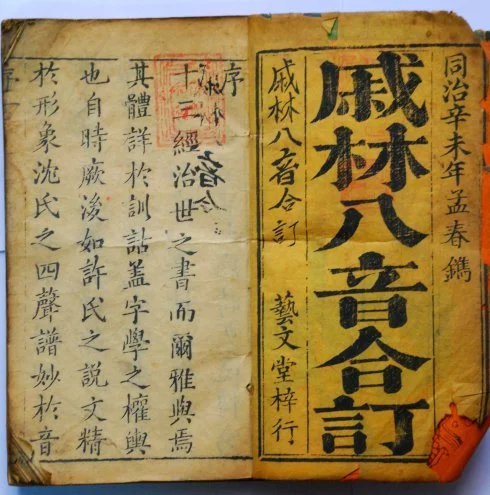 同治辛未年孟春鐫
戚林八音合訂
戚林八音合訂
藝文堂梓行
序
十三經治世之書而爾雅與焉
其體詳於訓詁蓋字學之權輿
也自時厥後如許氏之說文精
於形象沈氏之四聲譜妙於音
序